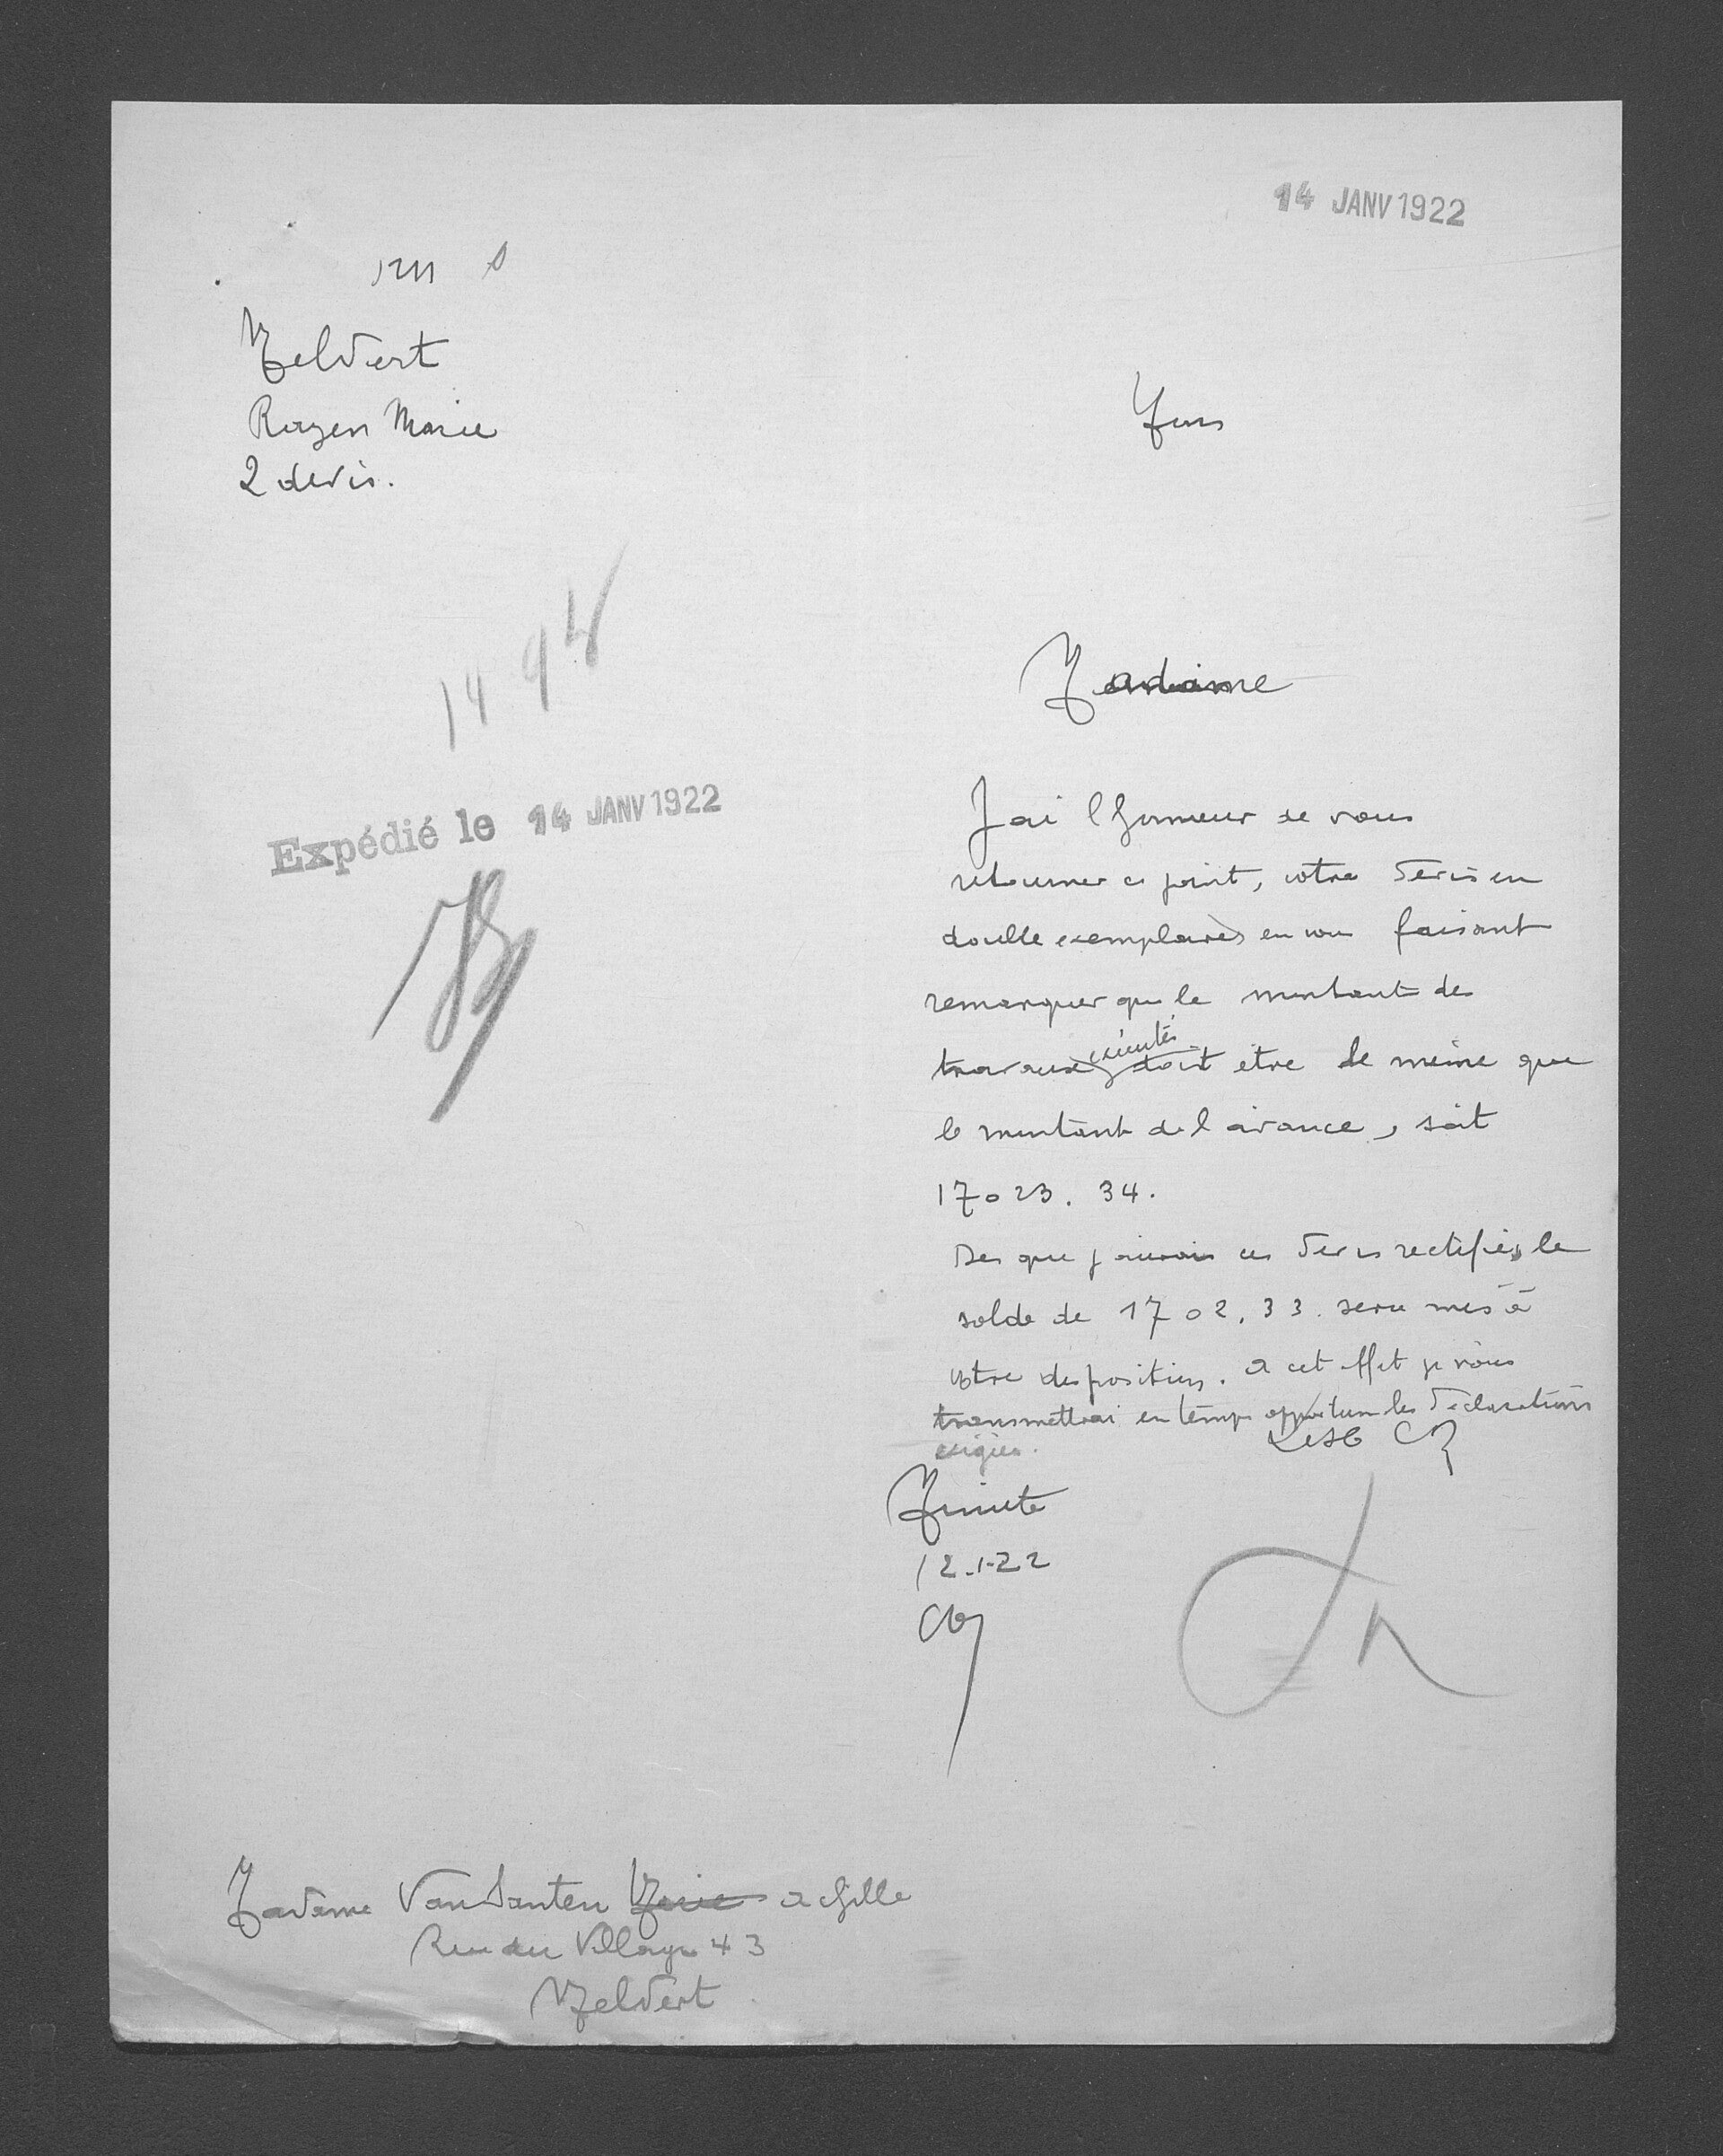 14 JANV 1922
Meldert
Royen Marie
2 devis.
Mons
1494
Madame
Expédié le 14 JANV 1922
J ai l honneur de vous
retourner ci joint, votre devis en
double exemplaires en vous faisant
remarquer que le montant des
travaux exécutés doit etre le meme que
le montant de l avance, soit
17023.34.
Des que j aurai ces devis rectifiés le
solde de 1702,33 sera mis à
votre disposition. a cet effet je vous
transmettrai en temps opportun les déclarations
exigées.
Minute
12-1-22
Madame Van Santen Marie achille
Rue du Village 43
Meldert